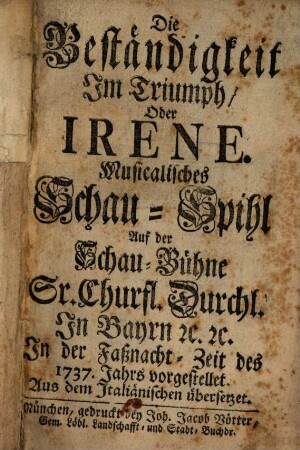 Die
Beständigkeit
Im Triumph/
Oder
IRENE.
Musicalisches
Schau-Spihl
Auf der
Schau-Bühne
Sr. Churfl. Durchl.
In Bayrn ꝛc. ꝛc.
In der Faßnacht-Zeit des
1737. Jahrs vorgestellet.
Aus dem Italiänischen übersetzet.
München, gedruckt bey Joh. Jacob Vötter,
Gem. Löbl. Landschafft- und Stadt-Buchdr.